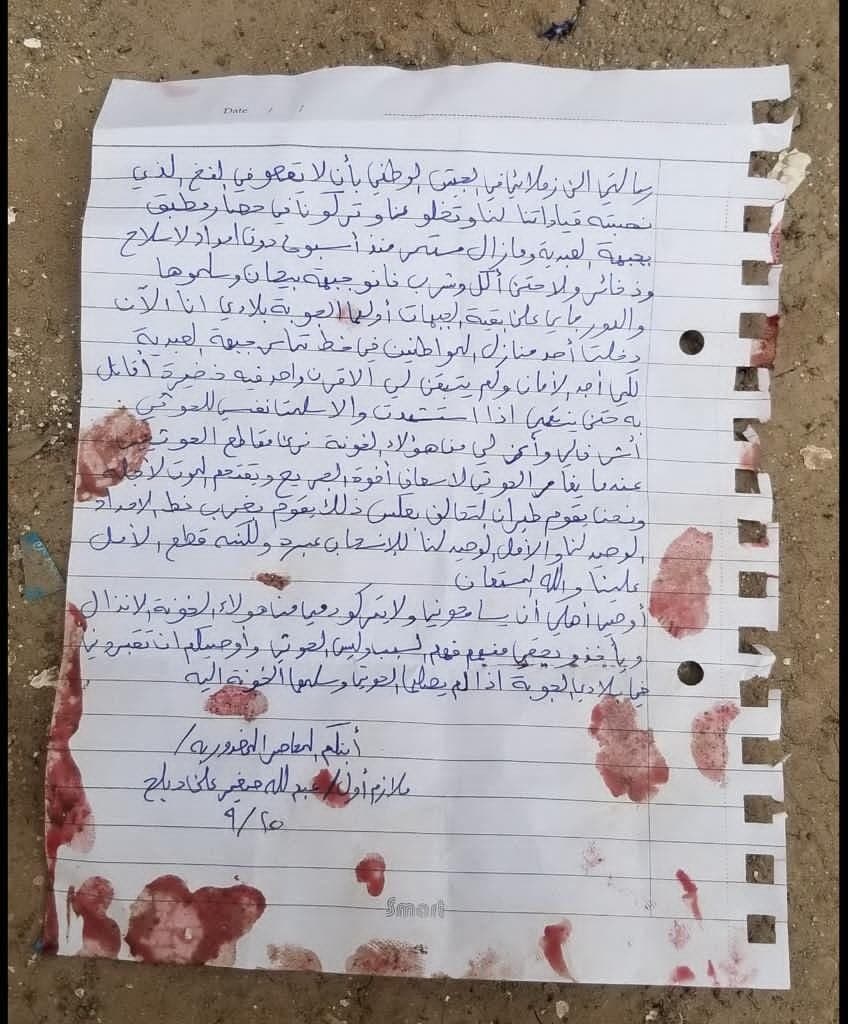 Date / /
رسالتي الى زملائي في الجيش الوطني بأن لا تقعو في الفخ الذي
نصبته قياداتنا لنا وتخلو عنا وتركونا في حصار مطبق
بجبهة العبدية ومازال مستمر منذ أسبوع دون امداد لاسلاح
وذخائر ولا حتى أكل وشرب خانو جبهة بيحان وسلموها
والدور جاي على بقية الجبهات أولها الجوبة بلادي انا الآن
دخلت أحد منازل المواطنين في خط تماس جبهة العبدية
لكي أجد الأمان ولم يتبقى لي الا قرن واحد فيه ذخيرة أقاتل
به حتى ينتهي اذا استشهدت والا سلمت نفسي للحوثي
أشرف لي من هؤلاء الخونة نرى مقاطع الحوثيين
عندما يغامر الحوثي لاسعاف أخوه الجريح ويقتحم الموت لأجله
ونحنا يقوم طيران التحالف بعكس ذلك يقوم بضرب خط الامداد
الوحيد لنا والأمل الوحيد لنا للإنسحاب ولكنه قطع الأمل
علينا والله المستعان
أوصي أهلي أن يسامحوني ولا يتركو دمي من هولاء الخونة الانذال
ويأخذو بحقي منهم فهم السبب وليس الحوثي وأوصيكم ان تقبروني
في بلادي الجوبة اذا لم يصلها الحوثي وسلمها الخونة اليه
أبنكم المحاصر المغدور به /
ملازم أول / عبدلله صغير علي
٩/٢٥
Smart